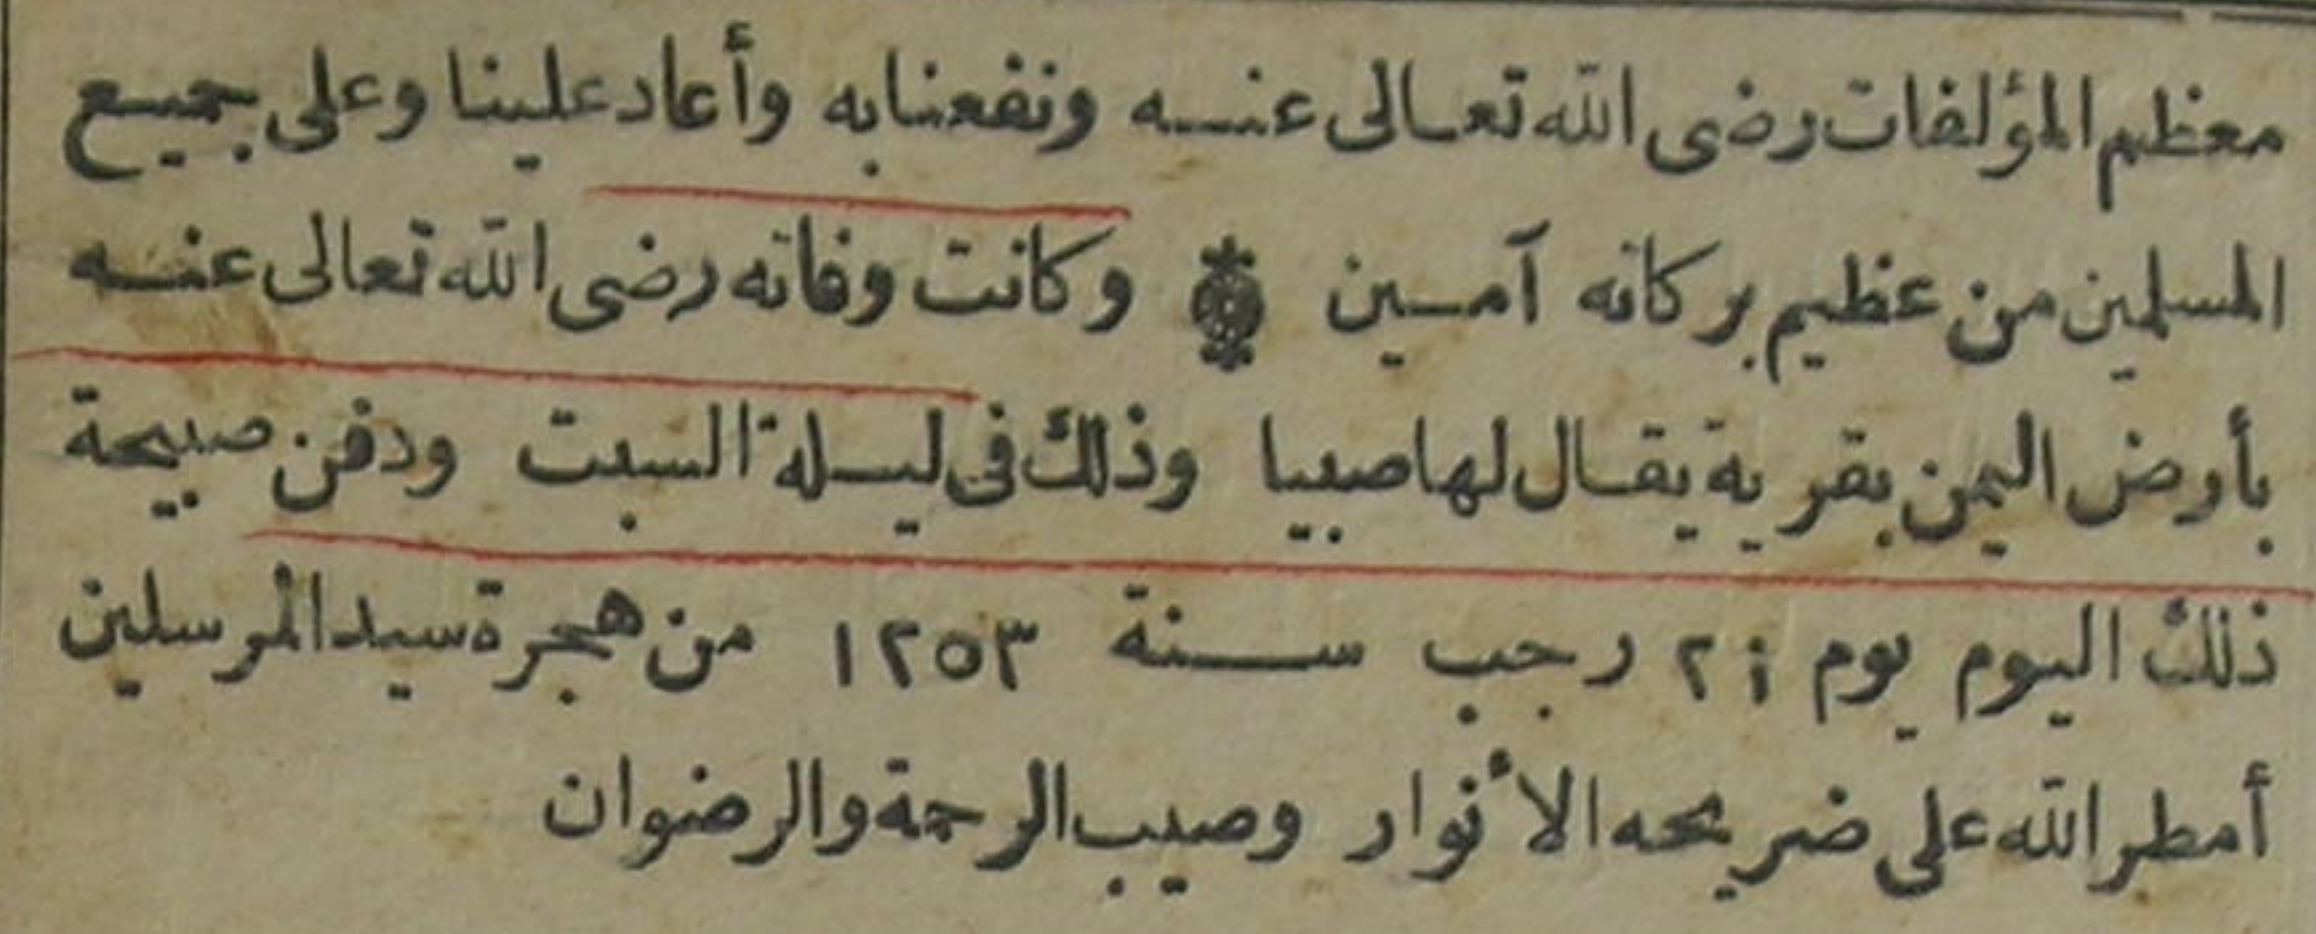 معظم المؤلفات رضى الله تعالى عنه ونفعنا به وأعاد علينا وعلى جميع
المسلمين من عظيم بركاته آمين وكانت وفاته رضى الله تعالى عنه
بأرض اليمن بقرية يقال لها صبيا وذلك فى ليلة السبت ودفن صبيحة
ذلك اليوم يوم ٢١ رجب سنة ١٢٥٣ من هجرة سيد المرسلين
أمطر الله على ضريحه الأنوار وصيب الرحمة والرضوان